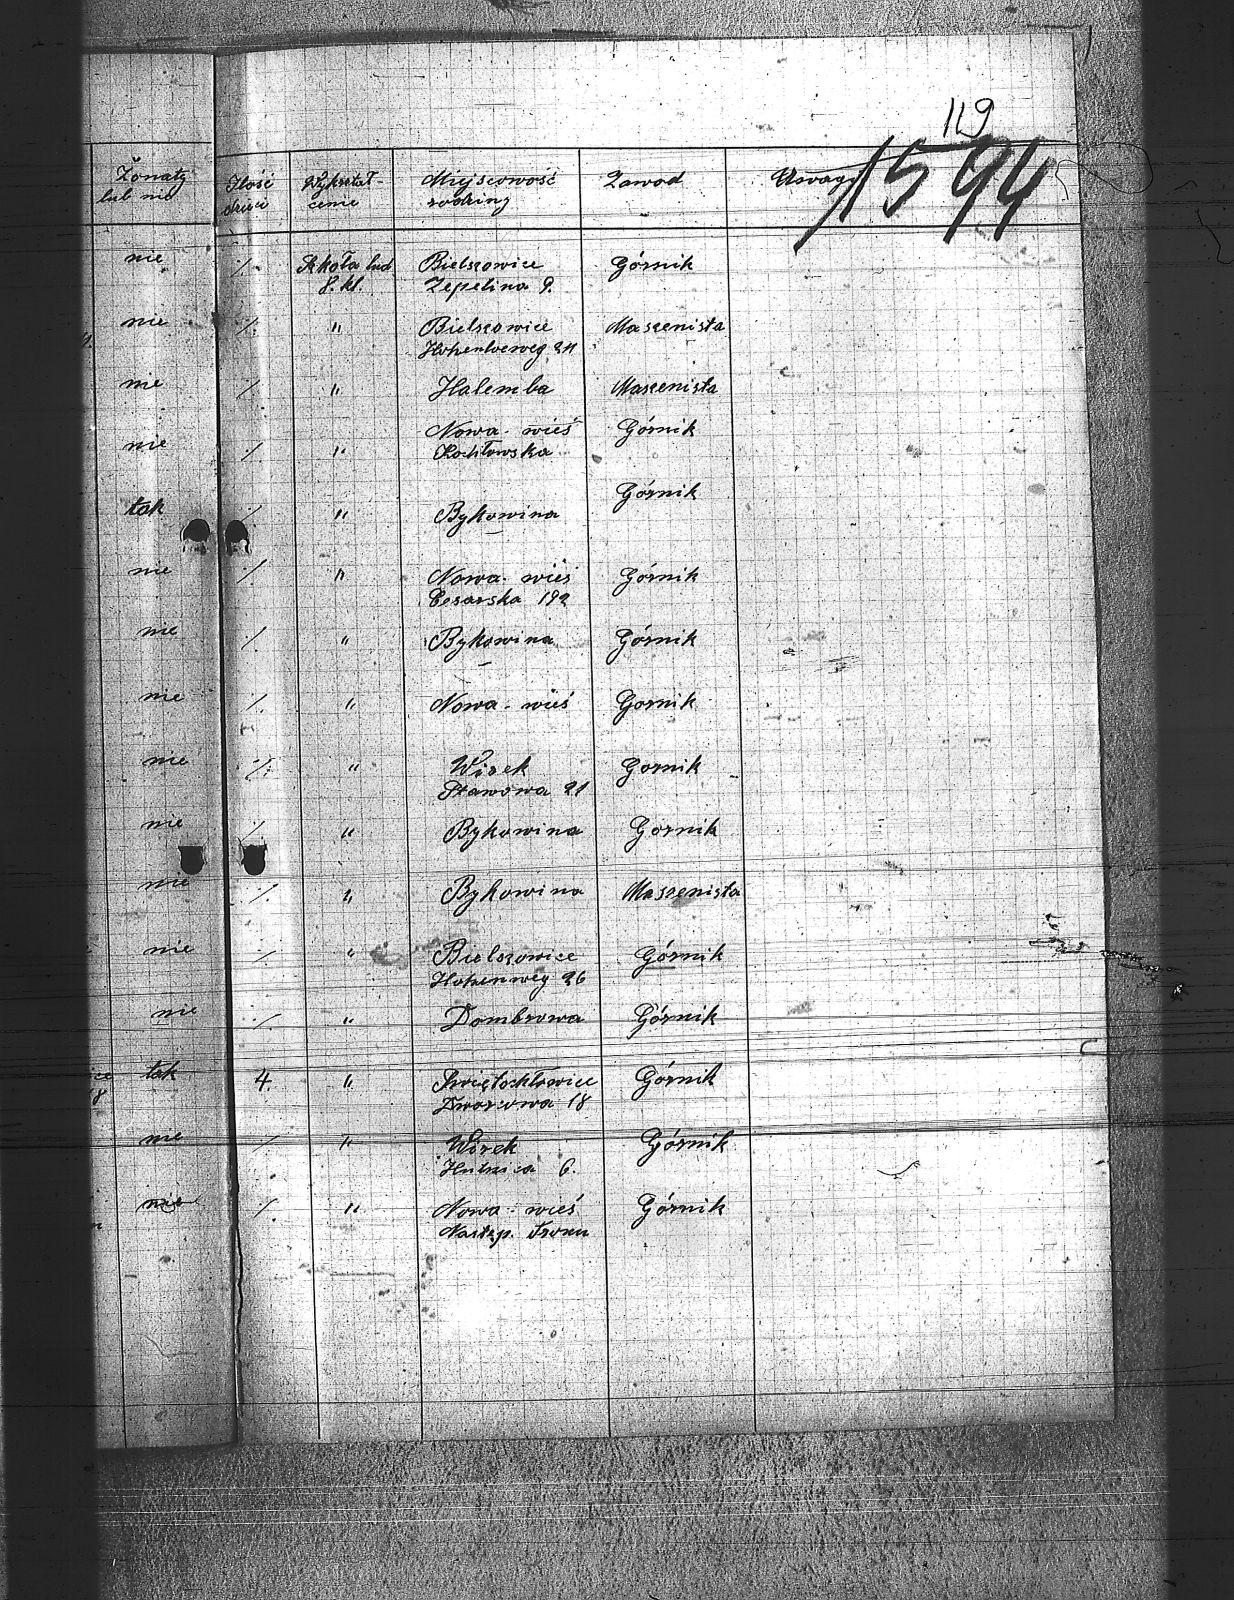 119
1594
Żonaty lub nie | Ilość dzieci | Wykształcenie | Miejscowość rodziny | Zawod | Uwagi
nie | / | Szkoła lud 8. kl. | Bielszowice | Górnik
Zepelina 9.
nie | / | " | Bielszowice | Maszenista
Hohenloeweg 24
nie | / | " | Halemba | Maszenista
Nowa-wieś | Górnik
nie | / | " | Kochłowska
Górnik
tak | / | " | Bykowina
nie | / | " | Nowa-wieś | Górnik
Cesarska 192
nie | / | " | Bykowina | Górnik
nie | / | " | Nowa-wieś | Gornik
nie | / | " | Wirek | Gornik
Stawowa 21
nie | / | " | Bykowina | Gornik
nie | / | " | Bykowina | Maszenista
nie | / | " | Bielszowice | Górnik
Hohenweg 26
nie | / | " | Dombrowa | Górnik
tak | 4. | " | Świętochłowice | Górnik
Dworcowa 18
nie | / | " | Wirek | Górnik
6.
nie | / | " | Nowa-wieś | Górnik
Następ. Tronu